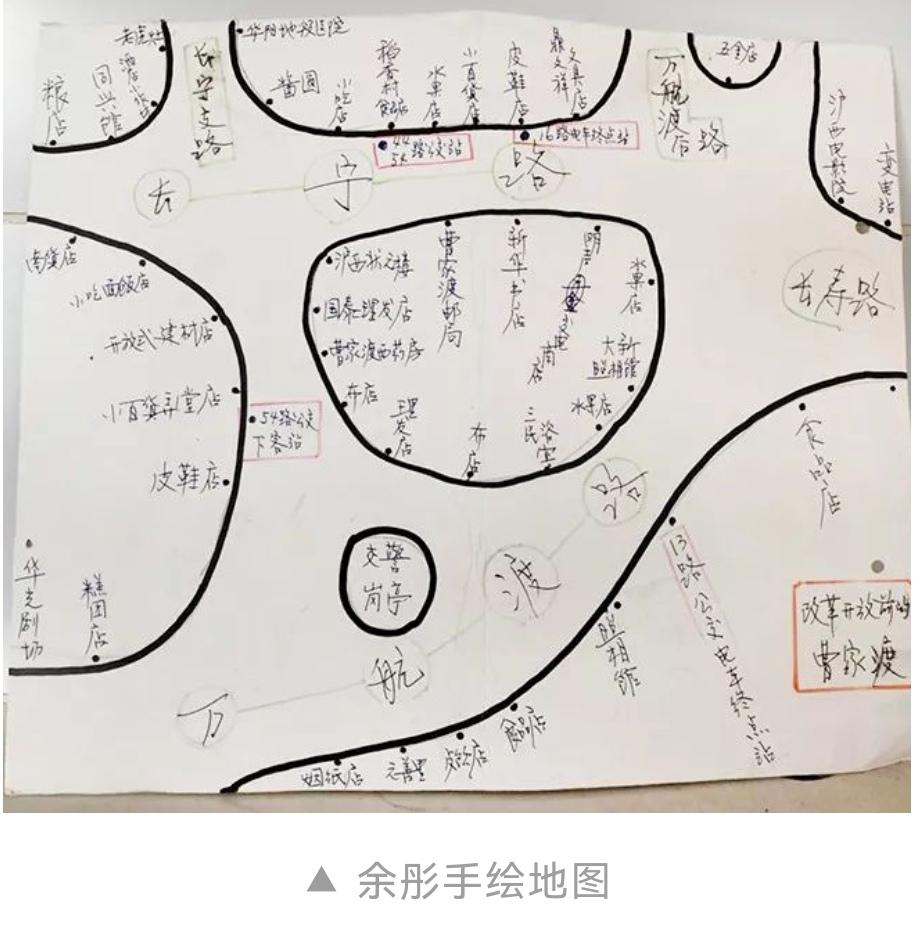 老虎灶
酒店小吃
同兴馆
粮店
长宁支路
华阳地段医院
酱园
小吃店
稻香村食品店
水果店
小百货店
皮鞋店
鼎久祥
文具店
万航渡后路
五金店
沪西电影院
变电站
44
54路公交站
16路电车终点站
长宁路
长寿路
南货店
小吃面饭店
开放式建材店
小百货弄堂店
皮鞋店
华光剧场
糕团店
54路公交
下客站
沪西状元楼
国泰理发店
曹家渡西药房
布店
理发店
曹家渡邮局
新华书店
布店
三民浴室
水果店
大新
照相馆
水果店
交警
岗亭
万航渡路
食品店
13路公交电车终点站
照相馆
食品店
元善里
烟纸店
改革开放前的
曹家渡
▲ 余彤手绘地图